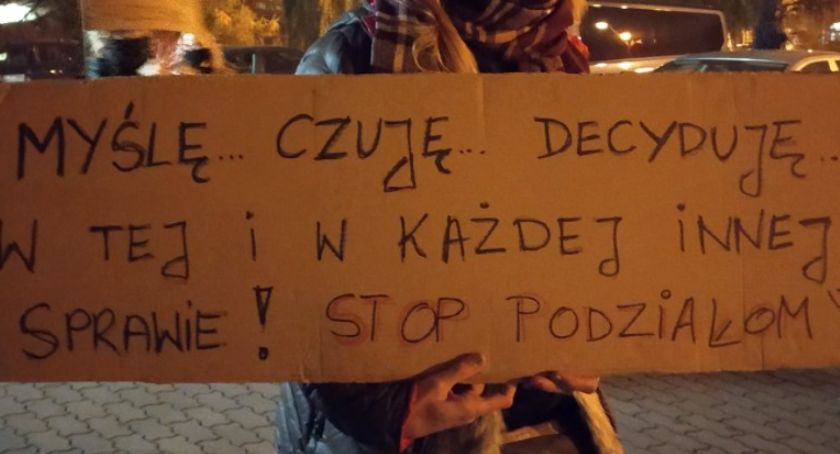 MYŚLĘ... CZUJĘ... DECYDUJĘ...
W TEJ i W KAŻDEJ iNNEJ
SPRAWiE! STOP PODZiAŁOM!